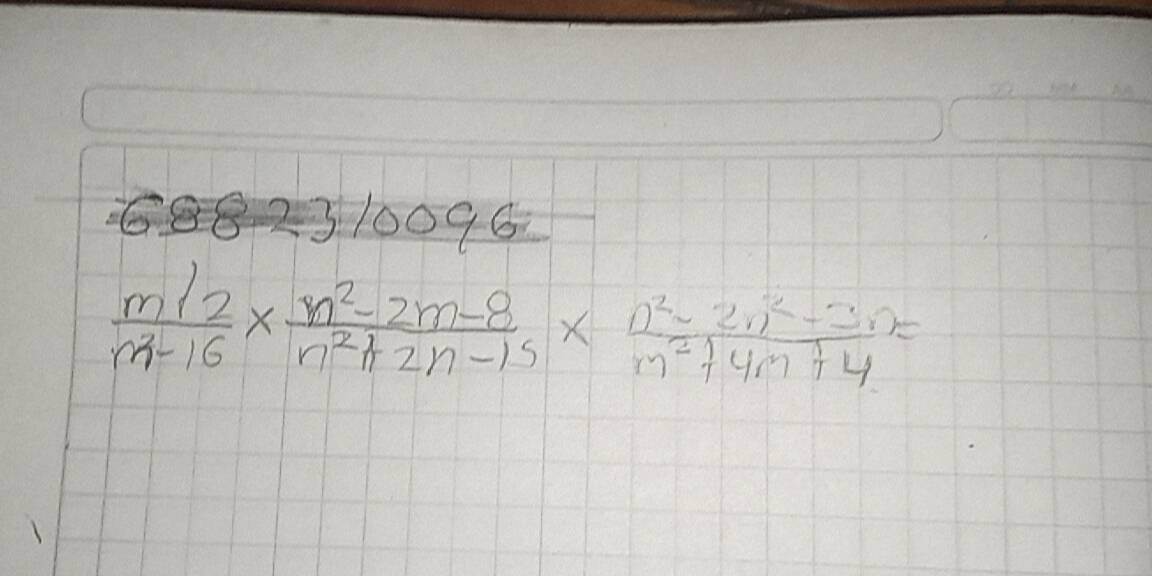 6882310096
m+2/m²-16 × m²-2m-8/n²+2n-15 × n²-2n²-3n=/m²+4m+4